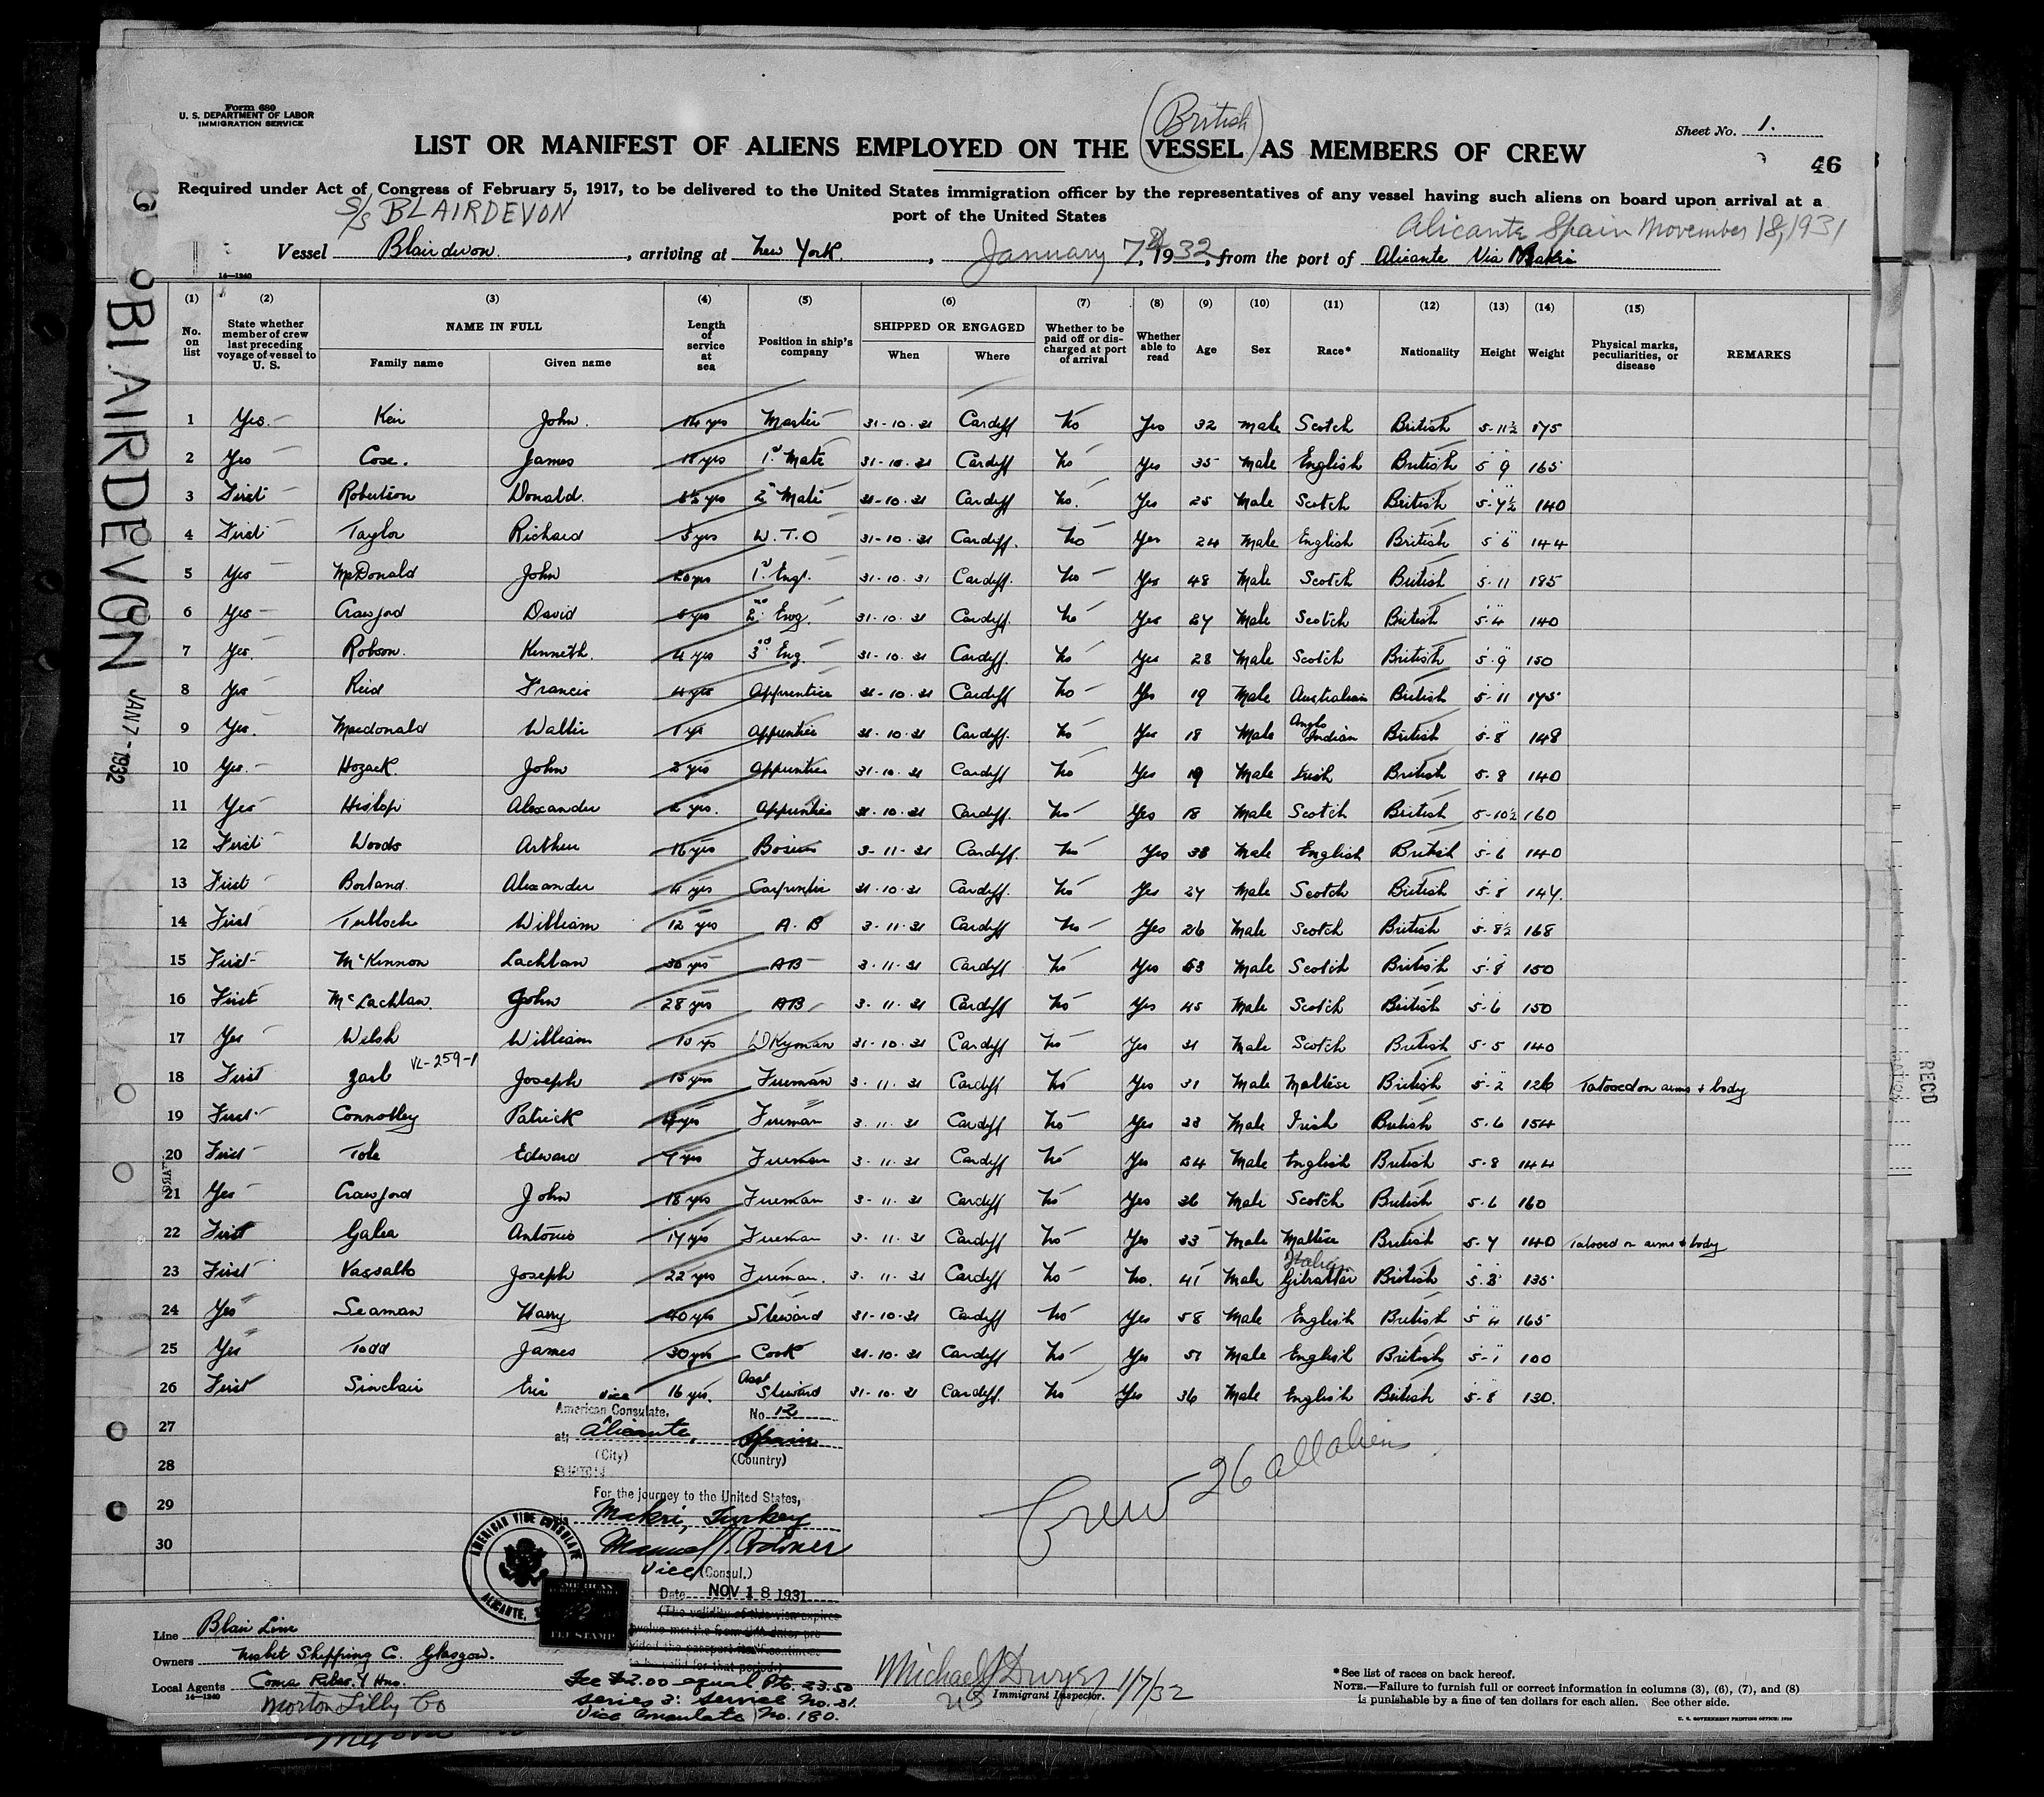 Form 680
U. S. DEPARTMENT OF LABOR
IMMIGRATION SERVICE
Sheet No. 1.
(British)
LIST OR MANIFEST OF ALIENS EMPLOYED ON THE VESSEL AS MEMBERS OF CREW
46
Required under Act of Congress of February 5, 1917, to be delivered to the United States immigration officer by the representatives of any vessel having such aliens on board upon arrival at a
port of the United States
S/S BLAIRDEVON
Alicante Spain November 18, 1931
Vessel Blairdevon, arriving at New York, January 7th, 1932, from the port of Alicante Via Makri
14—1240
BLAIRDEVON JAN 7 - 1932
(1) (2) (3) (4) (5) (6) (7) (8) (9) (10) (11) (12) (13) (14) (15)
No. on list | State whether member of crew last preceding voyage of vessel to U. S. | NAME IN FULL Family name Given name | Length of service at sea | Position in ship's company | SHIPPED OR ENGAGED When Where | Whether to be paid off or discharged at port of arrival | Whether able to read | Age | Sex | Race* | Nationality | Height | Weight | Physical marks, peculiarities, or disease | REMARKS
1 Yes Keir John 14 yrs Master 31-10-31 Cardiff No Yes 32 Male Scotch British 5-11½ 175
2 Yes Cose. James 18 yrs 1st Mate 31-10-31 Cardiff No Yes 35 Male English British 5 9 165
3 First Robertson Donald 8½ yrs 2nd Mate 31-10-31 Cardiff No Yes 25 Male Scotch British 5-7½ 140
4 First Taylor Richard 5 yrs W.T.O 31-10-31 Cardiff No Yes 24 Male English British 5 6 144
5 Yes McDonald John 20 yrs 1st Engr. 31-10-31 Cardiff No Yes 48 Male Scotch British 5-11 185
6 Yes Crawford David 5 yrs 2nd Eng. 31-10-31 Cardiff No Yes 27 Male Scotch British 5-4 140
7 Yes Robson Kenneth 4 yrs 3rd Eng. 31-10-31 Cardiff No Yes 28 Male Scotch British 5-9 150
8 Yes Reid Francis 4 yrs Apprentice 31-10-31 Cardiff No Yes 19 Male Australian British 5-11 175
9 Yes Macdonald Walter 1 yr Apprentice 31-10-31 Cardiff No Yes 18 Male Anglo Indian British 5-8 148
10 Yes Hozack John 2 yrs Apprentice 31-10-31 Cardiff No Yes 19 Male Irish British 5-8 140
11 Yes Hislop Alexander 2 yrs. Apprentice 31-10-31 Cardiff No Yes 18 Male Scotch British 5-10½ 160
12 First Woods Arthur 16 yrs Bosun 3-11-31 Cardiff No Yes 38 Male English British 5-6 140
13 First Borland Alexander 4 yrs Carpenter 31-10-31 Cardiff No Yes 27 Male Scotch British 5-8 147.
14 First Tulloch William 12 yrs A.B 3-11-31 Cardiff No Yes 26 Male Scotch British 5-8½ 168
15 First McKinnon Lachlan 30 yrs AB 3-11-31 Cardiff No Yes 53 Male Scotch British 5-8 150
16 First McLachlan John 28 yrs AB 3-11-31 Cardiff No Yes 45 Male Scotch British 5-6 150
17 Yes Welsh William 10 yrs DKyman 31-10-31 Cardiff No Yes 31 Male Scotch British 5-5 140
VL-259-1
18 First Zarb Joseph 15 yrs Fireman 3-11-31 Cardiff No Yes 31 Male Maltese British 5-2 126 Tatooed on arms & body
19 First Connolley Patrick yrs Fireman 3-11-31 Cardiff No Yes 33 Male Irish British 5-6 154
20 First Tole Edward 7 yrs Fireman 3-11-31 Cardiff No Yes 34 Male English British 5-8 144
21 Yes Crawford John 18 yrs Fireman 3-11-31 Cardiff No Yes 36 Male Scotch British 5-6 160
22 First Galea Antonio 17 yrs Fireman 3-11-31 Cardiff No Yes 33 Male Maltese British 5-7 140 Tatooed on arms & body
23 First Vassallo Joseph 22 yrs Fireman. 3-11-31 Cardiff No No. 41 Male Italian Gibraltar British 5-8 135
24 Yes Seaman Harry 40 yrs Steward 31-10-31 Cardiff No Yes 58 Male English British 5 4 165
25 Yes Todd James 30 yrs Cook 31-10-31 Cardiff No Yes 51 Male English British 5-1 100
26 First Sinclair Eric 16 yrs. Asst Steward 31-10-31 Cardiff No Yes 36 Male English British 5-8 130.
27
28
29
30
Vice
American Consulate, No. 12
at: Alicante, Spain
(City) (Country)
For the journey to the United States,
Makri, Turkey
Vice (Consul.)
Date NOV 18 1931
(The validity of this visa expires
twelve months from this date, provided the passport itself continues to be valid for that period.)
AMERICAN VICE CONSULATE ALICANTE,
AMERICAN
FEE STAMP
Crew 26 all aliens
Line Blair Line
Owners Nisbet Shipping Co. Glasgow.
Local Agents
14—1240
Morton Lilly Co
Fee $2.00 equal Pts. 23.50
Series 3: Service No. 31.
Vice Consulate No. 180.
Michael J Dwyer 1/7/32
US Immigrant Inspector.
*See list of races on back hereof.
NOTE.—Failure to furnish full or correct information in columns (3), (6), (7), and (8)
is punishable by a fine of ten dollars for each alien. See other side.
U. S. GOVERNMENT PRINTING OFFICE: 1930
RECD